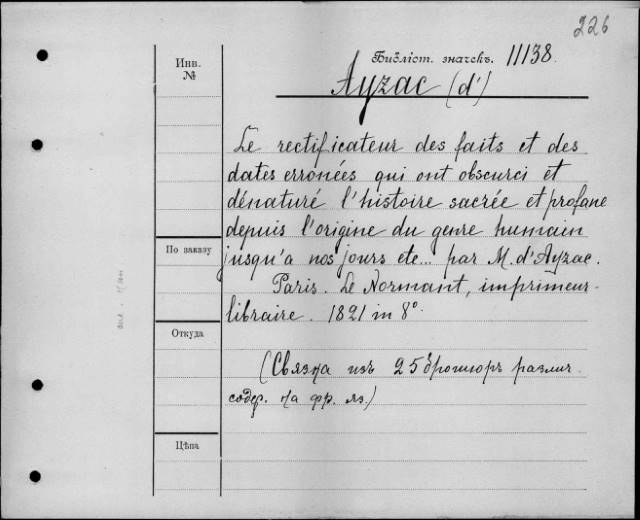 226
Инв.
№
Библіот. значекъ. 11138.
Ayzac (d')
Le rectificateur des faits et des
dates erronées qui ont obscurci et
dénaturé l'histoire sacrée et profane
depuis l'origine du genre humain
По заказу
jusqu'a nos jours etc... par M. d'Ayzac.
Paris. Le Normant, imprimeur-
libraire. 1821 in 8º.
Откуда
(Связка изъ 25 брошюръ различ.
содер. на фр. яз.)
Цѣна